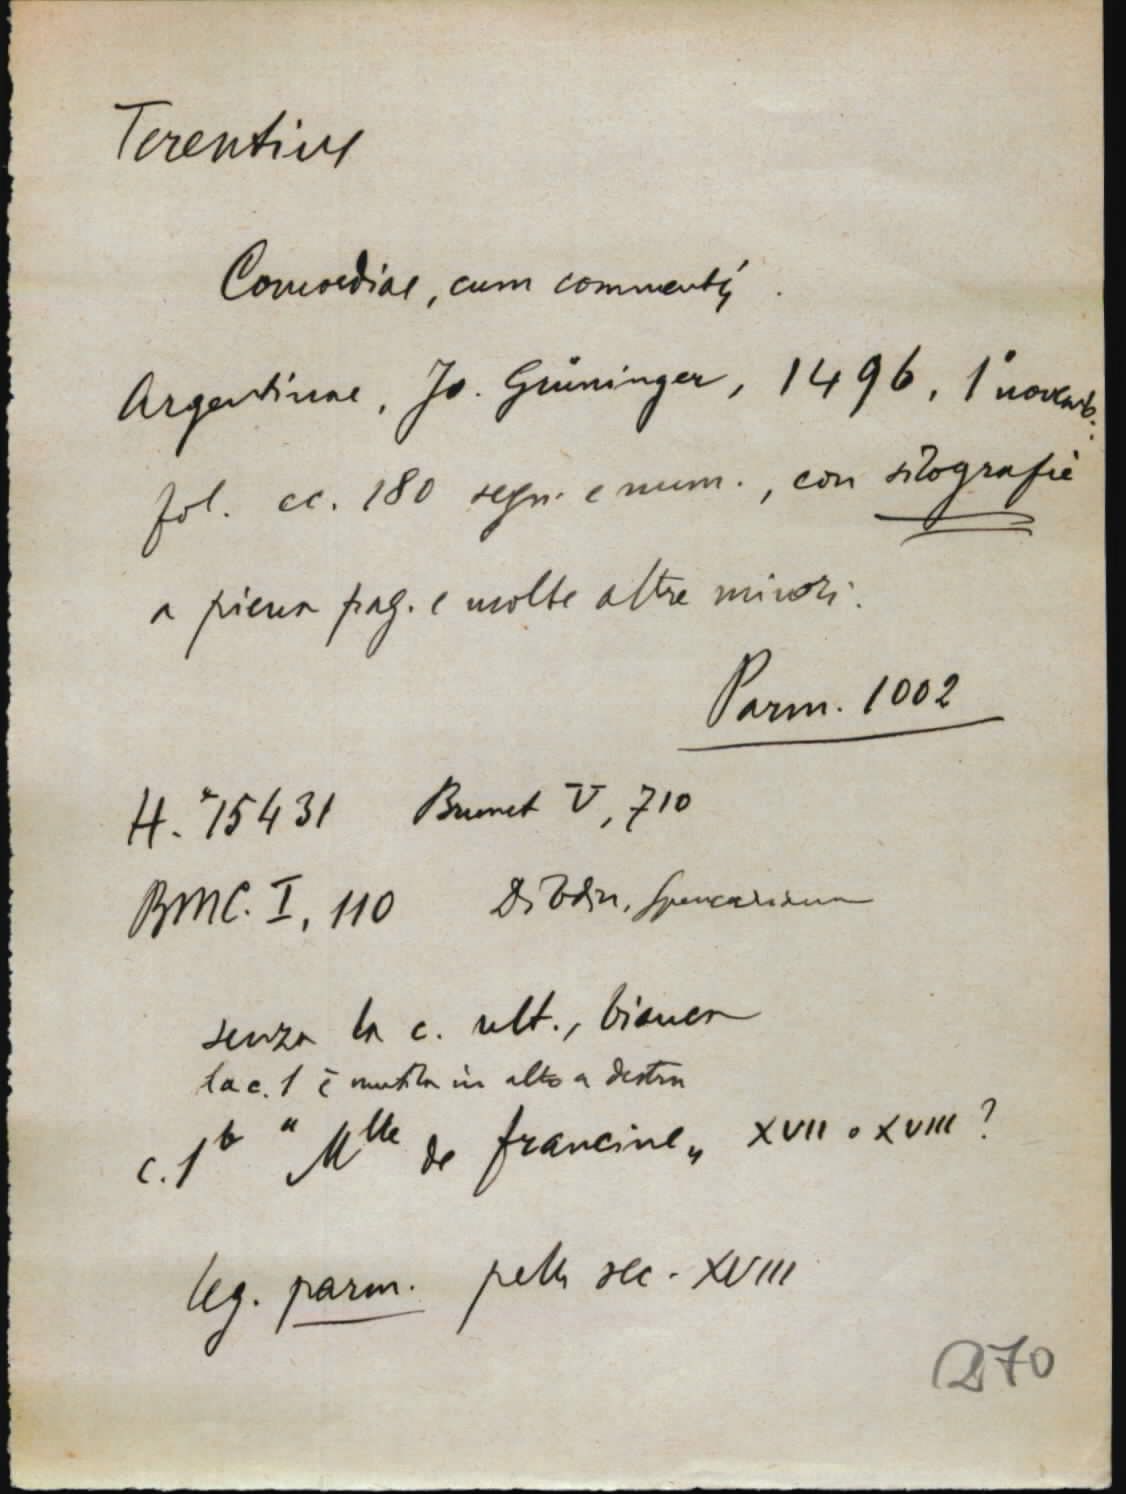 Terentius
Comoediae, cum commentis.
Argentinae, Jo. Grüninger, 1496, 1° novemb.
fol. cc. 180 segn. e num., con silografie
a piena pag. e molte altre minori.
Parm. 1002
H. *15431 Brunet V, 710
BMC. I, 110 Dibdin, Spenceriana
senza la c. ult., bianca
la c. 1 è mutila in alto a destra
c. 1b "Mlle de francine„ XVII o XVIII ?
leg. parm. pelle sec. XVIII
270